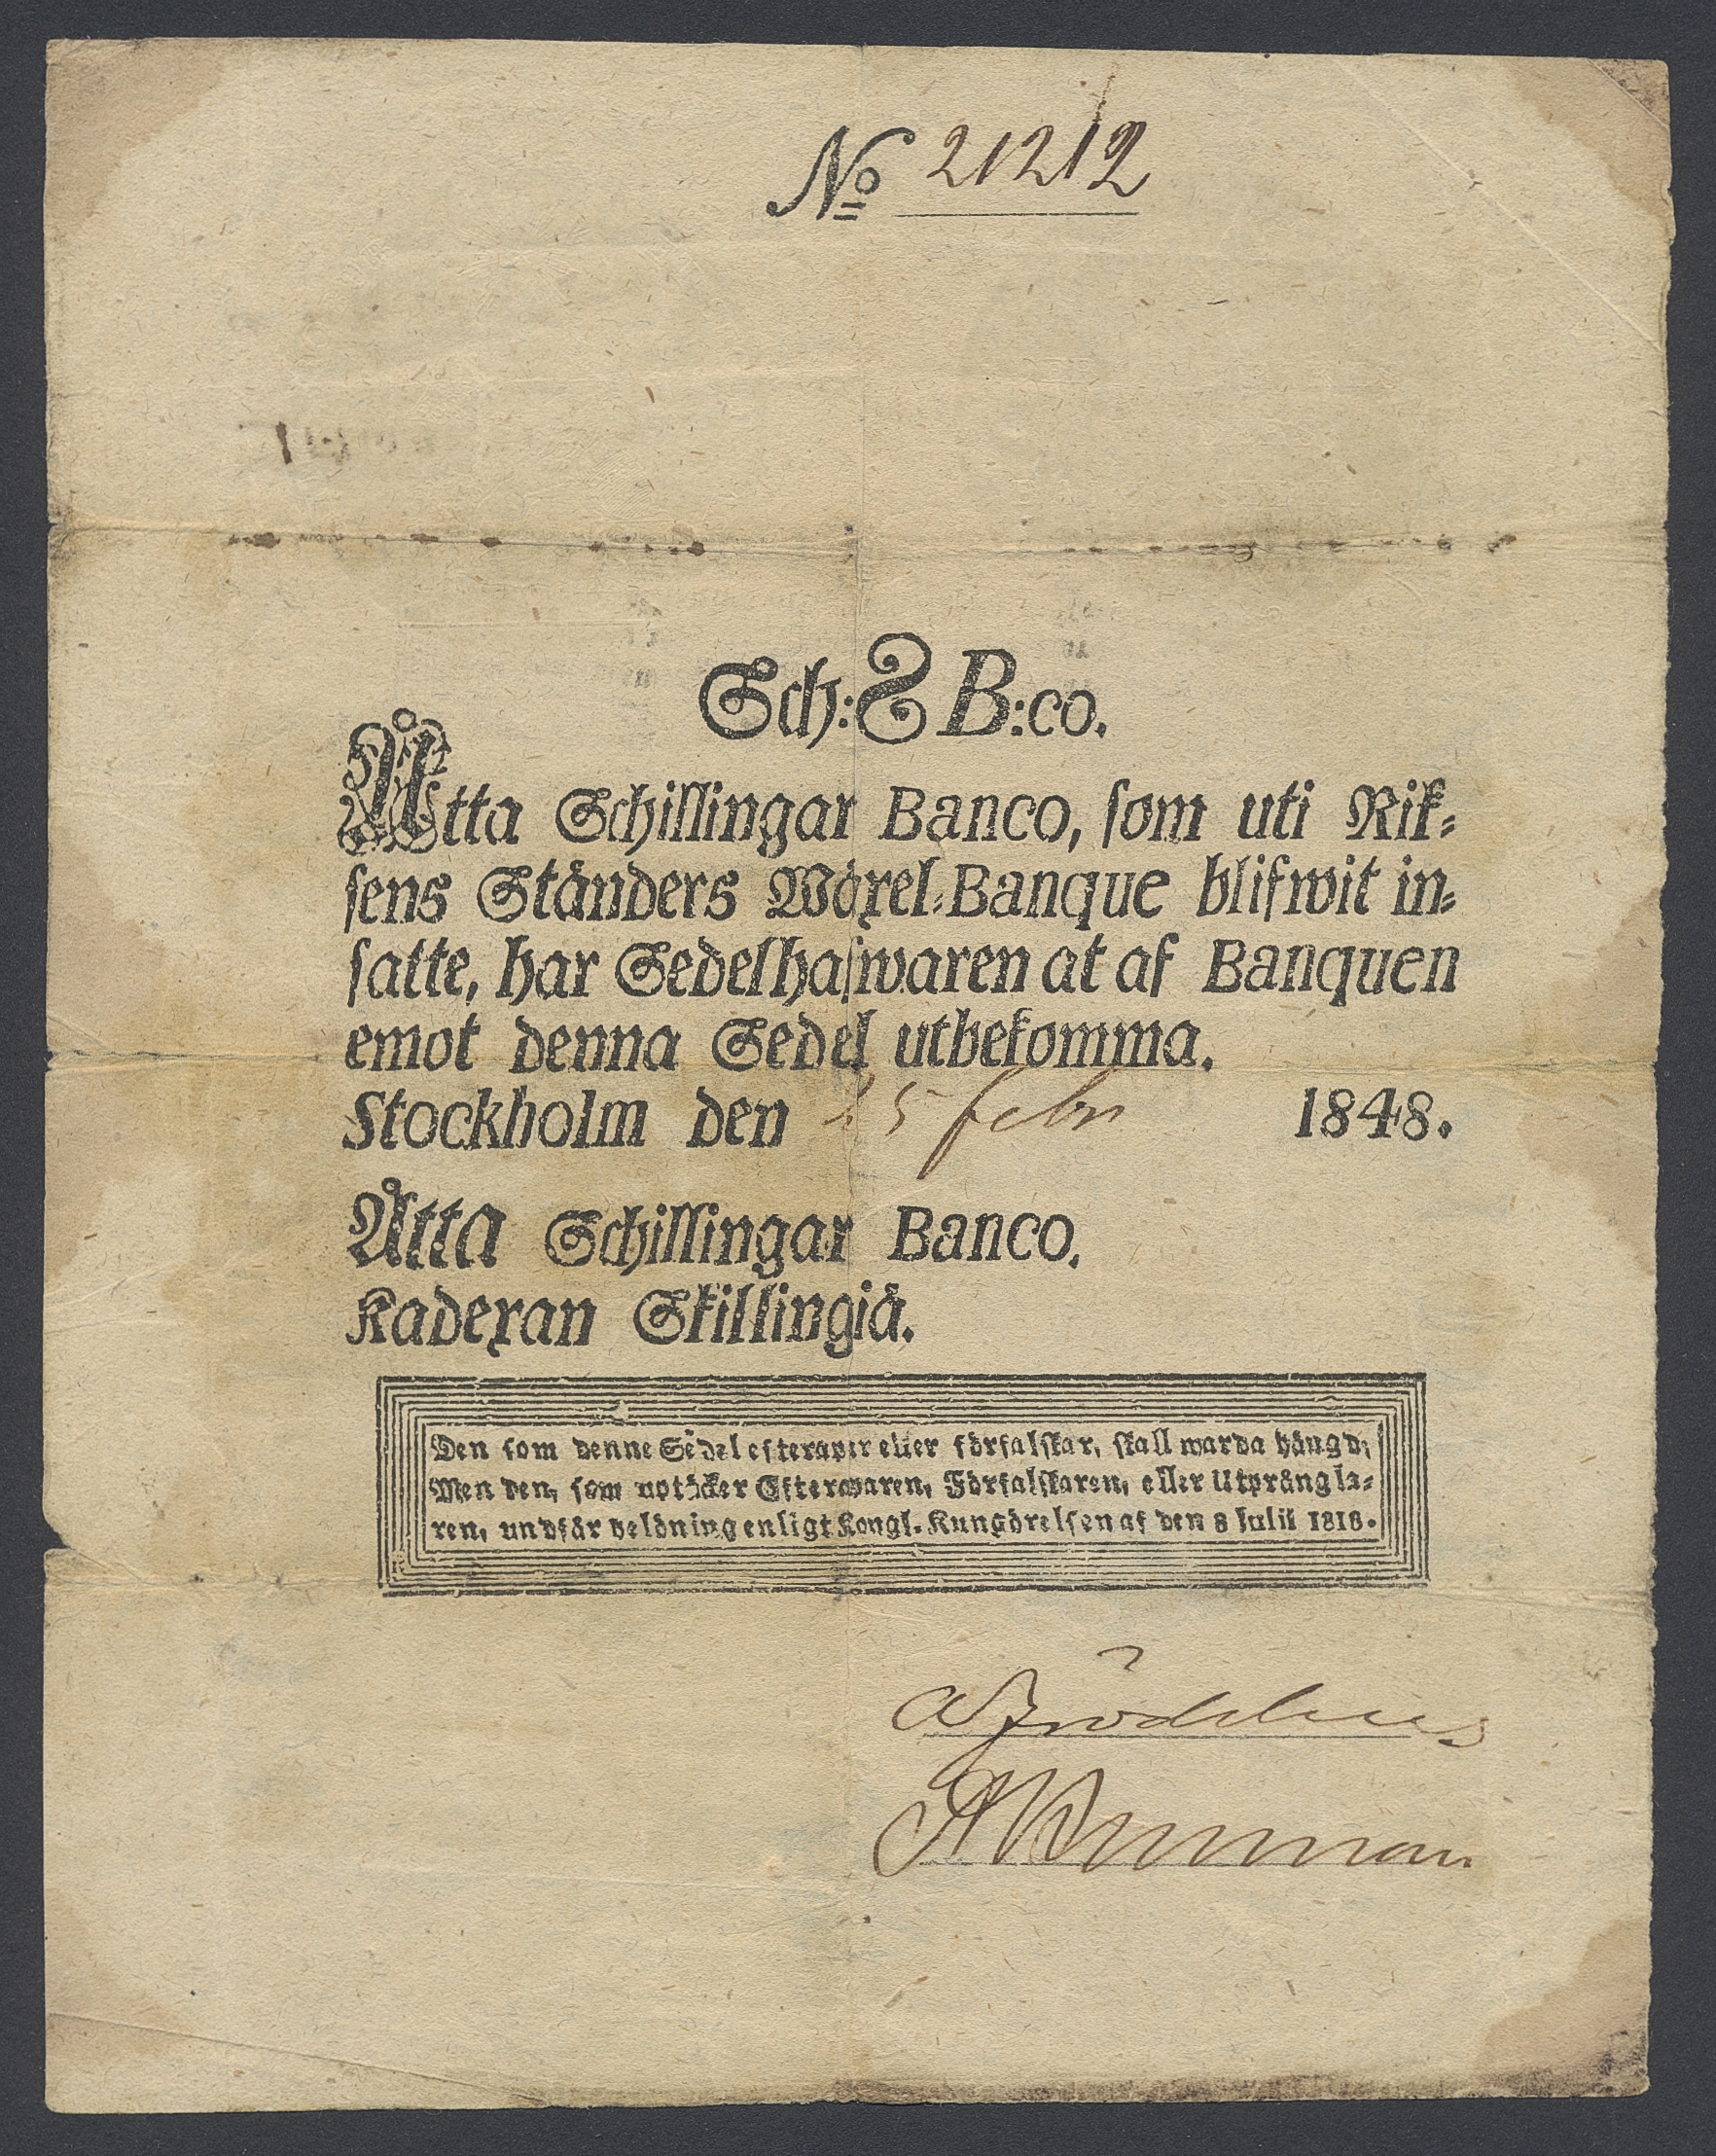 No 21212
Sch: 8 B:co.
Åtta Schillingar Banco, som uti Rik=
sens Ständers Wäxel=Banque blifwit in=
satte, har Sedelhafwaren at af Banquen
emot denna Sedel utbekomma.
Stockholm den 25 febr 1848.
Åtta Schillingar Banco.
Kadexan Skillingiä.
Den som denne Sedel efterapar eller förfalskar, skall warda hängd;
Men den, som uptäcker Efterapparen, Förfalskaren, eller Utprångla=
ren, undfår belöning enligt Kongl. Kungörelsen af den 8 Julii 1818.